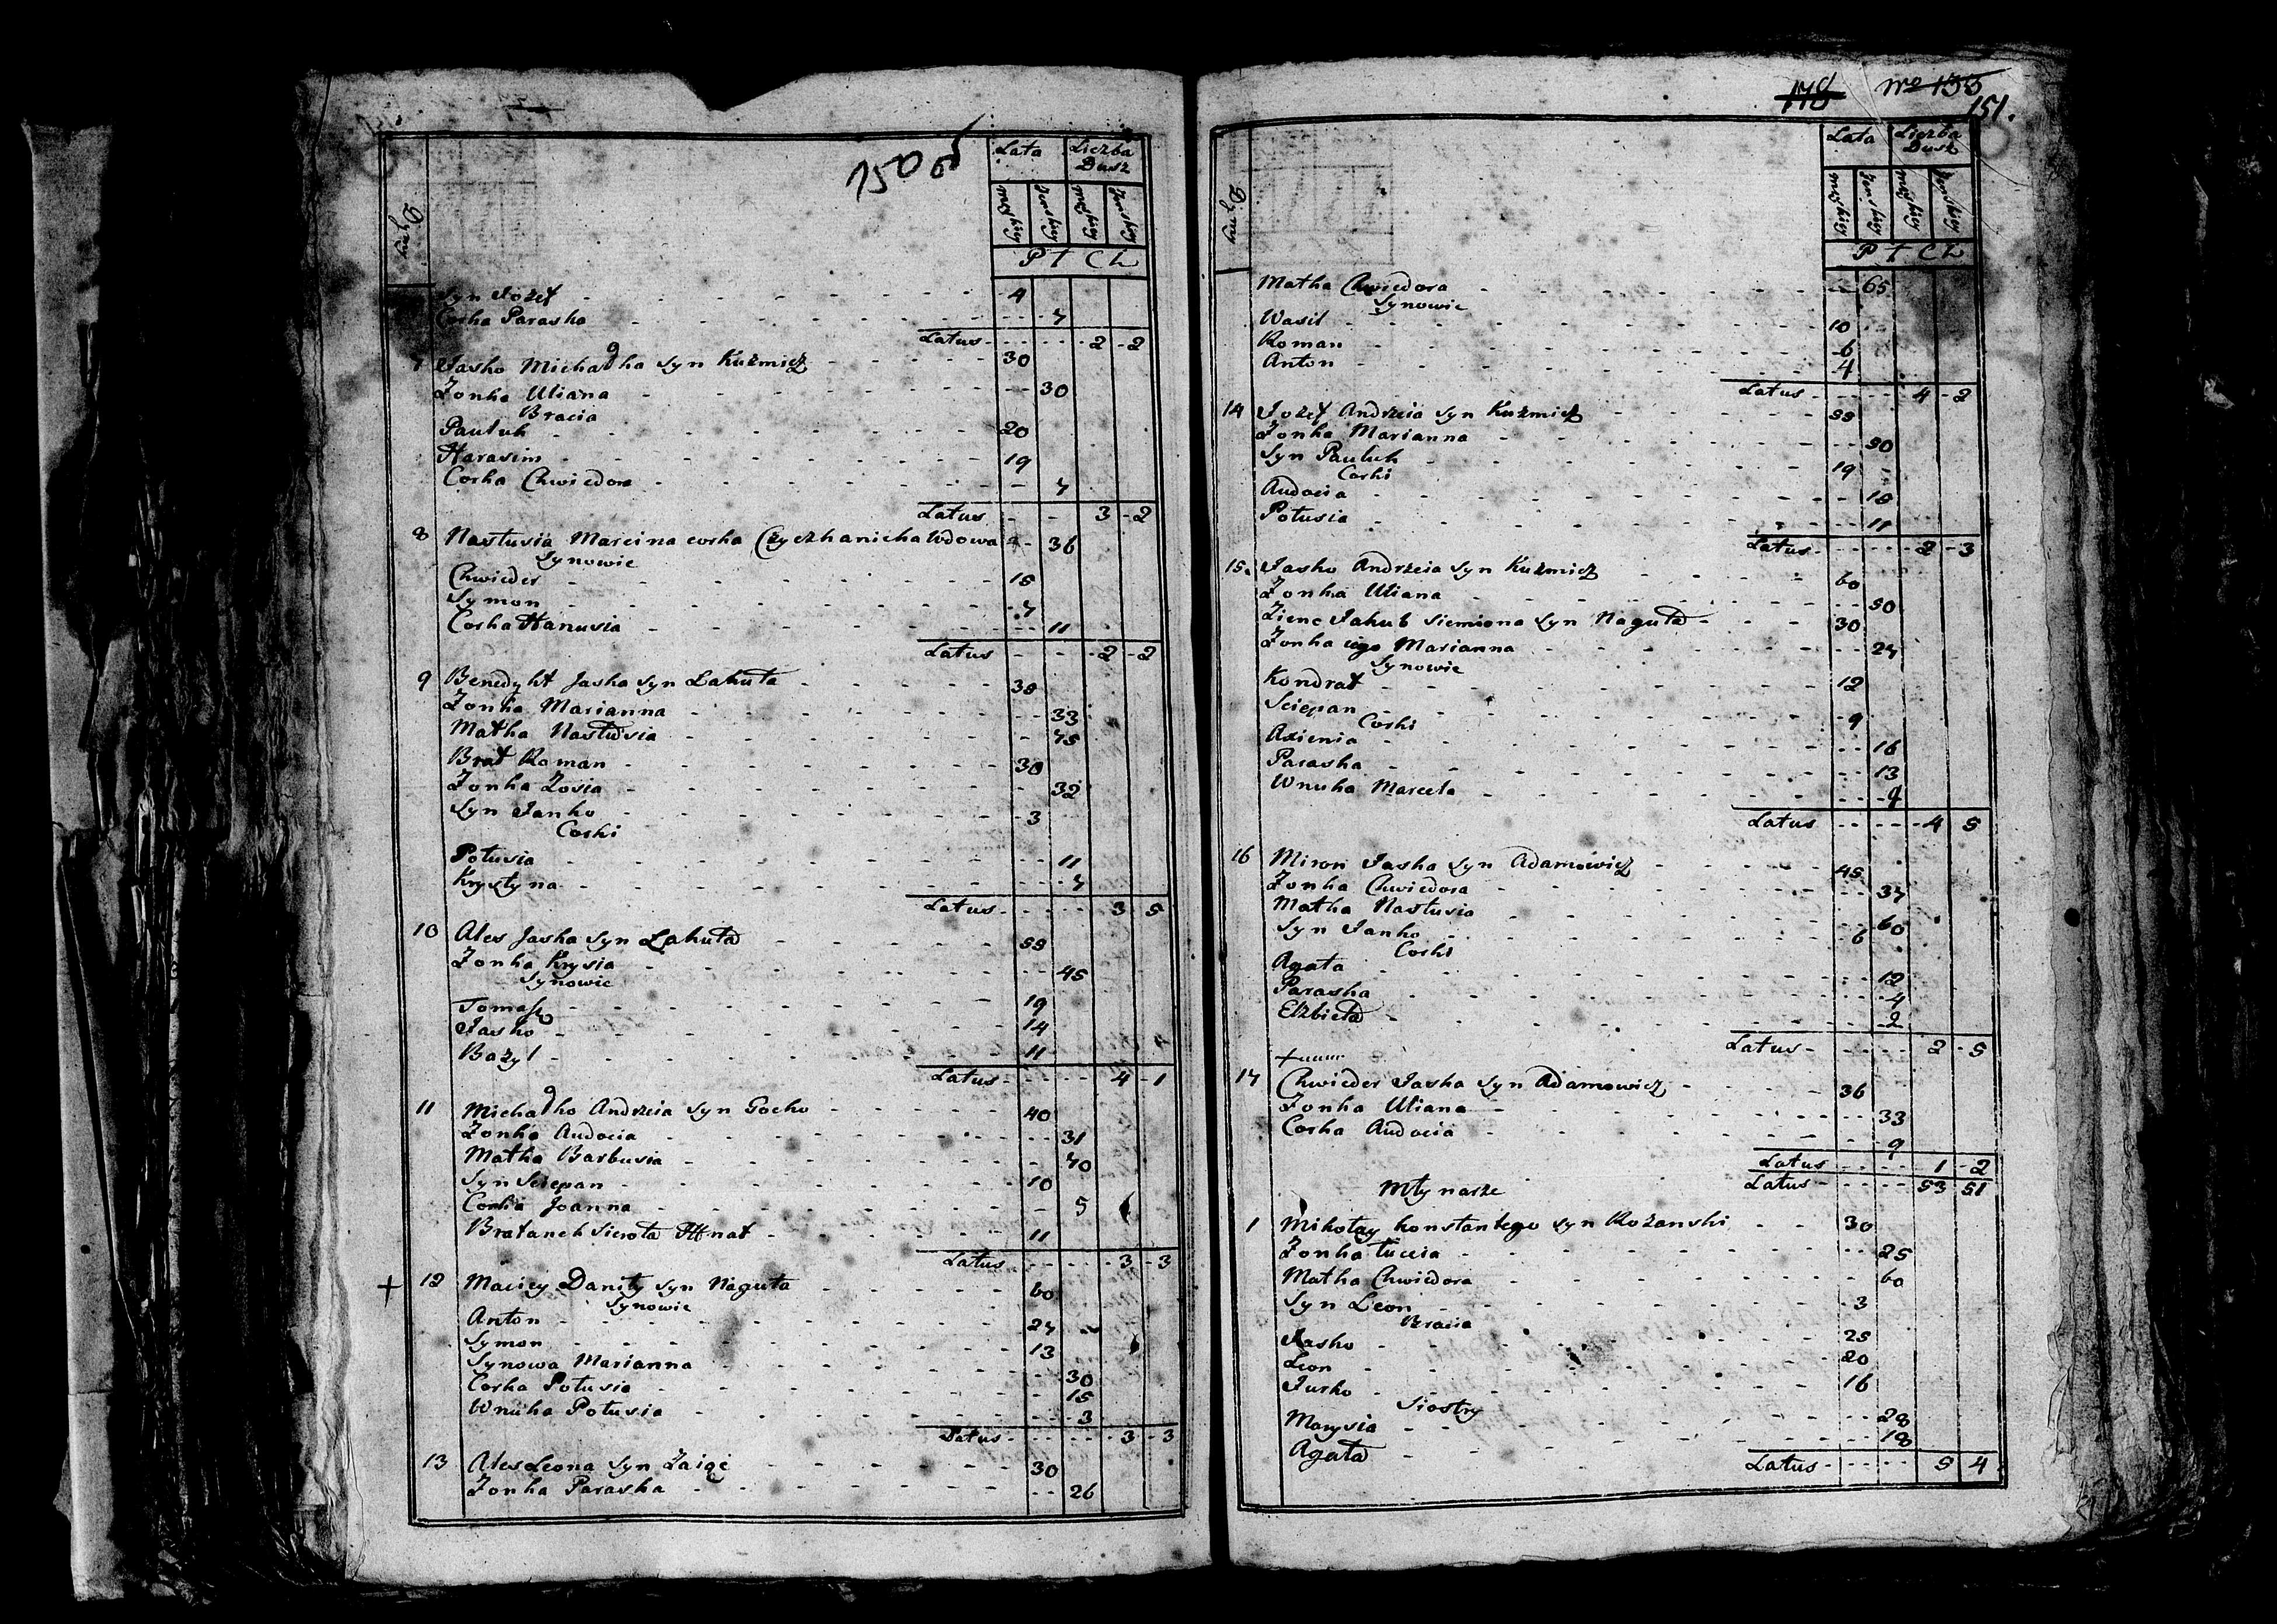 150 об
Dymy
Lata Liczba Dusz
męskiey żenskiey męskiey żenskiey
P t C L
Syn Jozef 4
Corka Paraska 7
Latus 2 2
7 Jasko Michałka Syn Kuźmicz 30
Żonka Uliana 30
Bracia
Pauluk 20
Harasim 19
Corka Chwiedora 7
Latus 3 2
8 Nastusia Marcina corka Czyczkanicha Wdowa 36
Synowie
Chwieder 15
Symon 7
Corka Hanusia 11
Latus 2 2
9 Benedykt Jaska Syn Łakuta 38
Żonka Marianna 33
Matka Nastusia 75
Brat Roman 30
Żonka Zosia 32
Syn Janko 3
Corki
Połusia 11
Krystyna 7
Latus 3 5
10 Ales Jaska Syn Łakuta 55
Żonka Krysia 45
Synowie
Tomasz 19
Jasko 14
Bazyl 11
Latus 4 1
11 Michałko Andrzeia Syn Gocko 40
Żonka Audocia 31
Matka Barbusia 70
Syn Sciepan 10
Corka Joanna 5
Bratanek Sierota Hnat 11
Latus 3 3
+ 12 Maciey Daniły Syn Naguła 60
Synowie
Anton 27
Symon 13
Synowa Marianna 30
Corka Połusia 15
Wnuka Połusia 3
Latus 3 3
13 Ales Leona Syn Zaige 30
Żonka Paraska 26
178 No 155
151.
Dymy
Lata Liczba Dusz
męskiey żenskiey męskiey żenskiey
P t C L
Matka Chwiedora 65
Synowie
Wasil 10
Roman 6
Anton 4
Latus 4 2
14 Jozef Andrzeia Syn Kuźmicz 55
Żonka Marianna 50
Syn Pauluk 19
Corki
Audocia 18
Połusia 11
Latus 2 3
15. Jasko Andrzeia Syn Kuźmicz 60
Żonka Uliana 50
Zienc Jakub Siemiona Syn Naguła 30
Żonka iego Marianna 27
Synowie
Kondrat 12
Sciepan 9
Corki
Axienia 16
Paraska 13
Wnuka Marcela 4
Latus 4 5
16 Miron Jaska Syn Adamowicz 45
Żonka Chwiedora 37
Matka Nastusia 60
Syn Janko 6
Corki
Agata 12
Paraska 4
Elżbieta 2
Latus 2 5
17 Chwieder Jaska Syn Adamowicz 36
Żonka Uliana 33
Corka Audocia 9
Latus 1 2
Latus 53 51
Młynarze
1 Mikołay Konstantego Syn Rożanski 30
Żonka Łucia 25
Matka Chwiedora 60
Syn Leon 3
Bracia
Jasko 25
Leon 20
Jurko 16
Siostry
Marysia 28
Agata 18
Latus 5 4